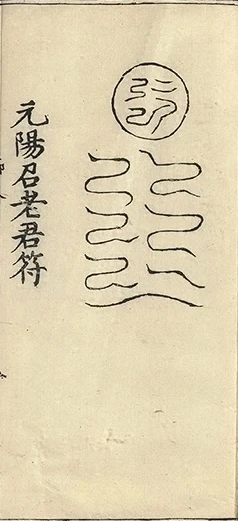 元陽召老君符